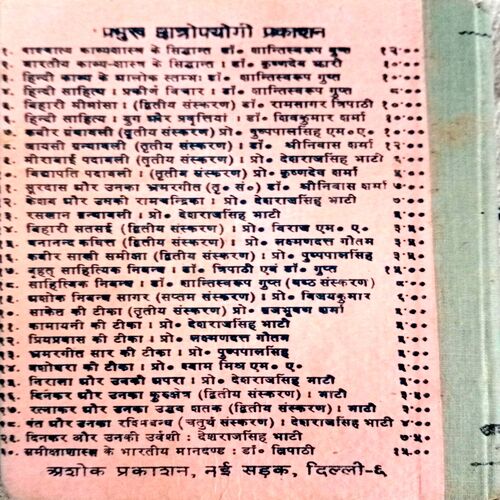 प्रमुख छात्रोपयोगी प्रकाशन
१. पाश्चात्य काव्यशास्त्र के सिद्धान्त डॉ० शान्तिस्वरूप गुप्त १२'००
२. भारतीय काव्य-शास्त्र के सिद्धान्त : डॉ० कृष्णदेव झारी १०'००
३. हिन्दी काव्य के आलोक स्तम्भः डॉ० शान्तिस्वरूप गुप्त १०'००
४. हिन्दी साहित्य : प्रकीर्ण विचार : डॉ० शान्तिस्वरूप गुप्त
५. बिहारी मीमांसा : (द्वितीय संस्करण) डॉ० रामसागर त्रिपाठी १०'००
६. हिन्दी साहित्य : युग और प्रवृत्तियां : डॉ० शिवकुमार शर्मा १०'००
७. कबीर ग्रंथावली (तृतीय संस्करण) प्रो० पुष्पपालसिंह एम० ए० १०'००
८. जायसी ग्रन्थावली (तृतीय संस्करण) : डॉ० श्रीनिवास शर्मा १२'००
९. मीराबाई पदावली (तृतीय संस्करण) : प्रो० देशराजसिंह भाटी
१०. विद्यापति पदावली : (तृतीय संस्करण) प्रो० कृष्णदेव शर्मा
११. सूरदास और उनका भ्रमरगीत (तृ० सं०) डॉ० श्रीनिवास शर्मा ७'००
१२. केशव और उनकी रामचन्द्रिका : प्रो० देशराजसिंह भाटी ७'००
१३. रसखान ग्रन्थावली : प्रो० देशराजसिंह भाटी
१४. बिहारी सतसई (द्वितीय संस्करण) : प्रो० विराज एम० ए०
१५. घनानन्द कवित्त (द्वितीय संस्करण) : प्रो० लक्ष्मणदत्त गौतम
१६. कबीर साखी समीक्षा (द्वितीय संस्करण) : प्रो० पुष्पपालसिंह
१७. बृहत् साहित्यिक निबन्ध : डॉ० त्रिपाठी एवं डॉ० गुप्त
१८. साहित्यिक निबन्ध : डॉ० शान्तिस्वरूप गुप्त (षष्ठ संस्करण)
१९. अशोक निबन्ध सागर (सप्तम संस्करण) : प्रो० विजयकुमार
२०. साकेत की टीका (तृतीय संस्करण) प्रो० ब्रजभूषण शर्मा
२१. कामायनी की टीका : प्रो० देशराजसिंह भाटी
२२. प्रियप्रवास की टीका : प्रो० लक्ष्मणदत्त गौतम
२३. भ्रमरगीत सार की टीका : प्रो० पुष्पपालसिंह
२४. यशोधरा की टीका : प्रो० श्याम मिश्र एम० ए०
२५. निराला और उनकी अपरा : प्रो० देशराजसिंह भाटी
२६. दिनकर और उनका कुरुक्षेत्र (द्वितीय संस्करण) : भाटी
२७. रत्नाकर और उनका उद्धव शतक (द्वितीय संस्करण) : भाटी
२८. पंत और उनका रश्मिबन्ध (चतुर्थ संस्करण) : देशराजसिंह भाटी
२९. दिनकर और उनकी उर्वशी : देशराजसिंह भाटी ७'५०
३०. समीक्षाशास्त्र के भारतीय मानदण्ड : डॉ० त्रिपाठी १५'००
अशोक प्रकाशन, नई सड़क, दिल्ली-६